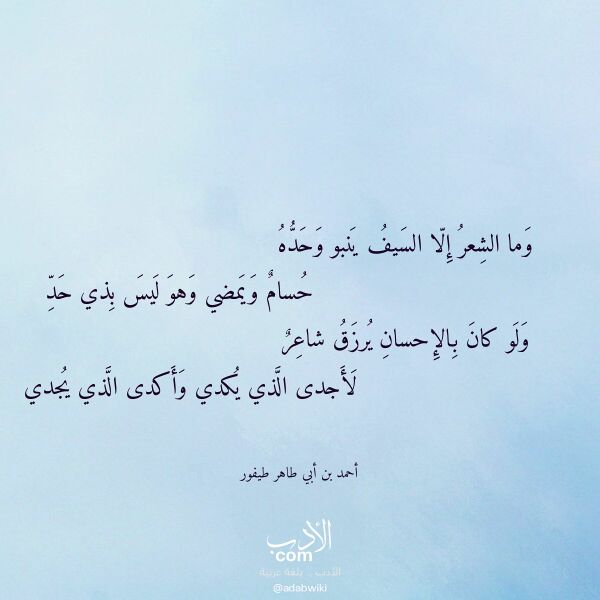 وَما الشِعرُ إِلّا السَيفُ يَنبو وَحَدُّهُ
حُسامٌ وَيَمضي وَهوَ لَيسَ بِذي حَدِّ
وَلَو كانَ بِالإِحسانِ يُرزَقُ شاعِرٌ
لَأَجدى الَّذي يُكدي وَأَكدى الَّذي يُجدي
أحمد بن أبي طاهر طيفور
الأدب
com
الأدب .. بلغة عربية
@adabwiki